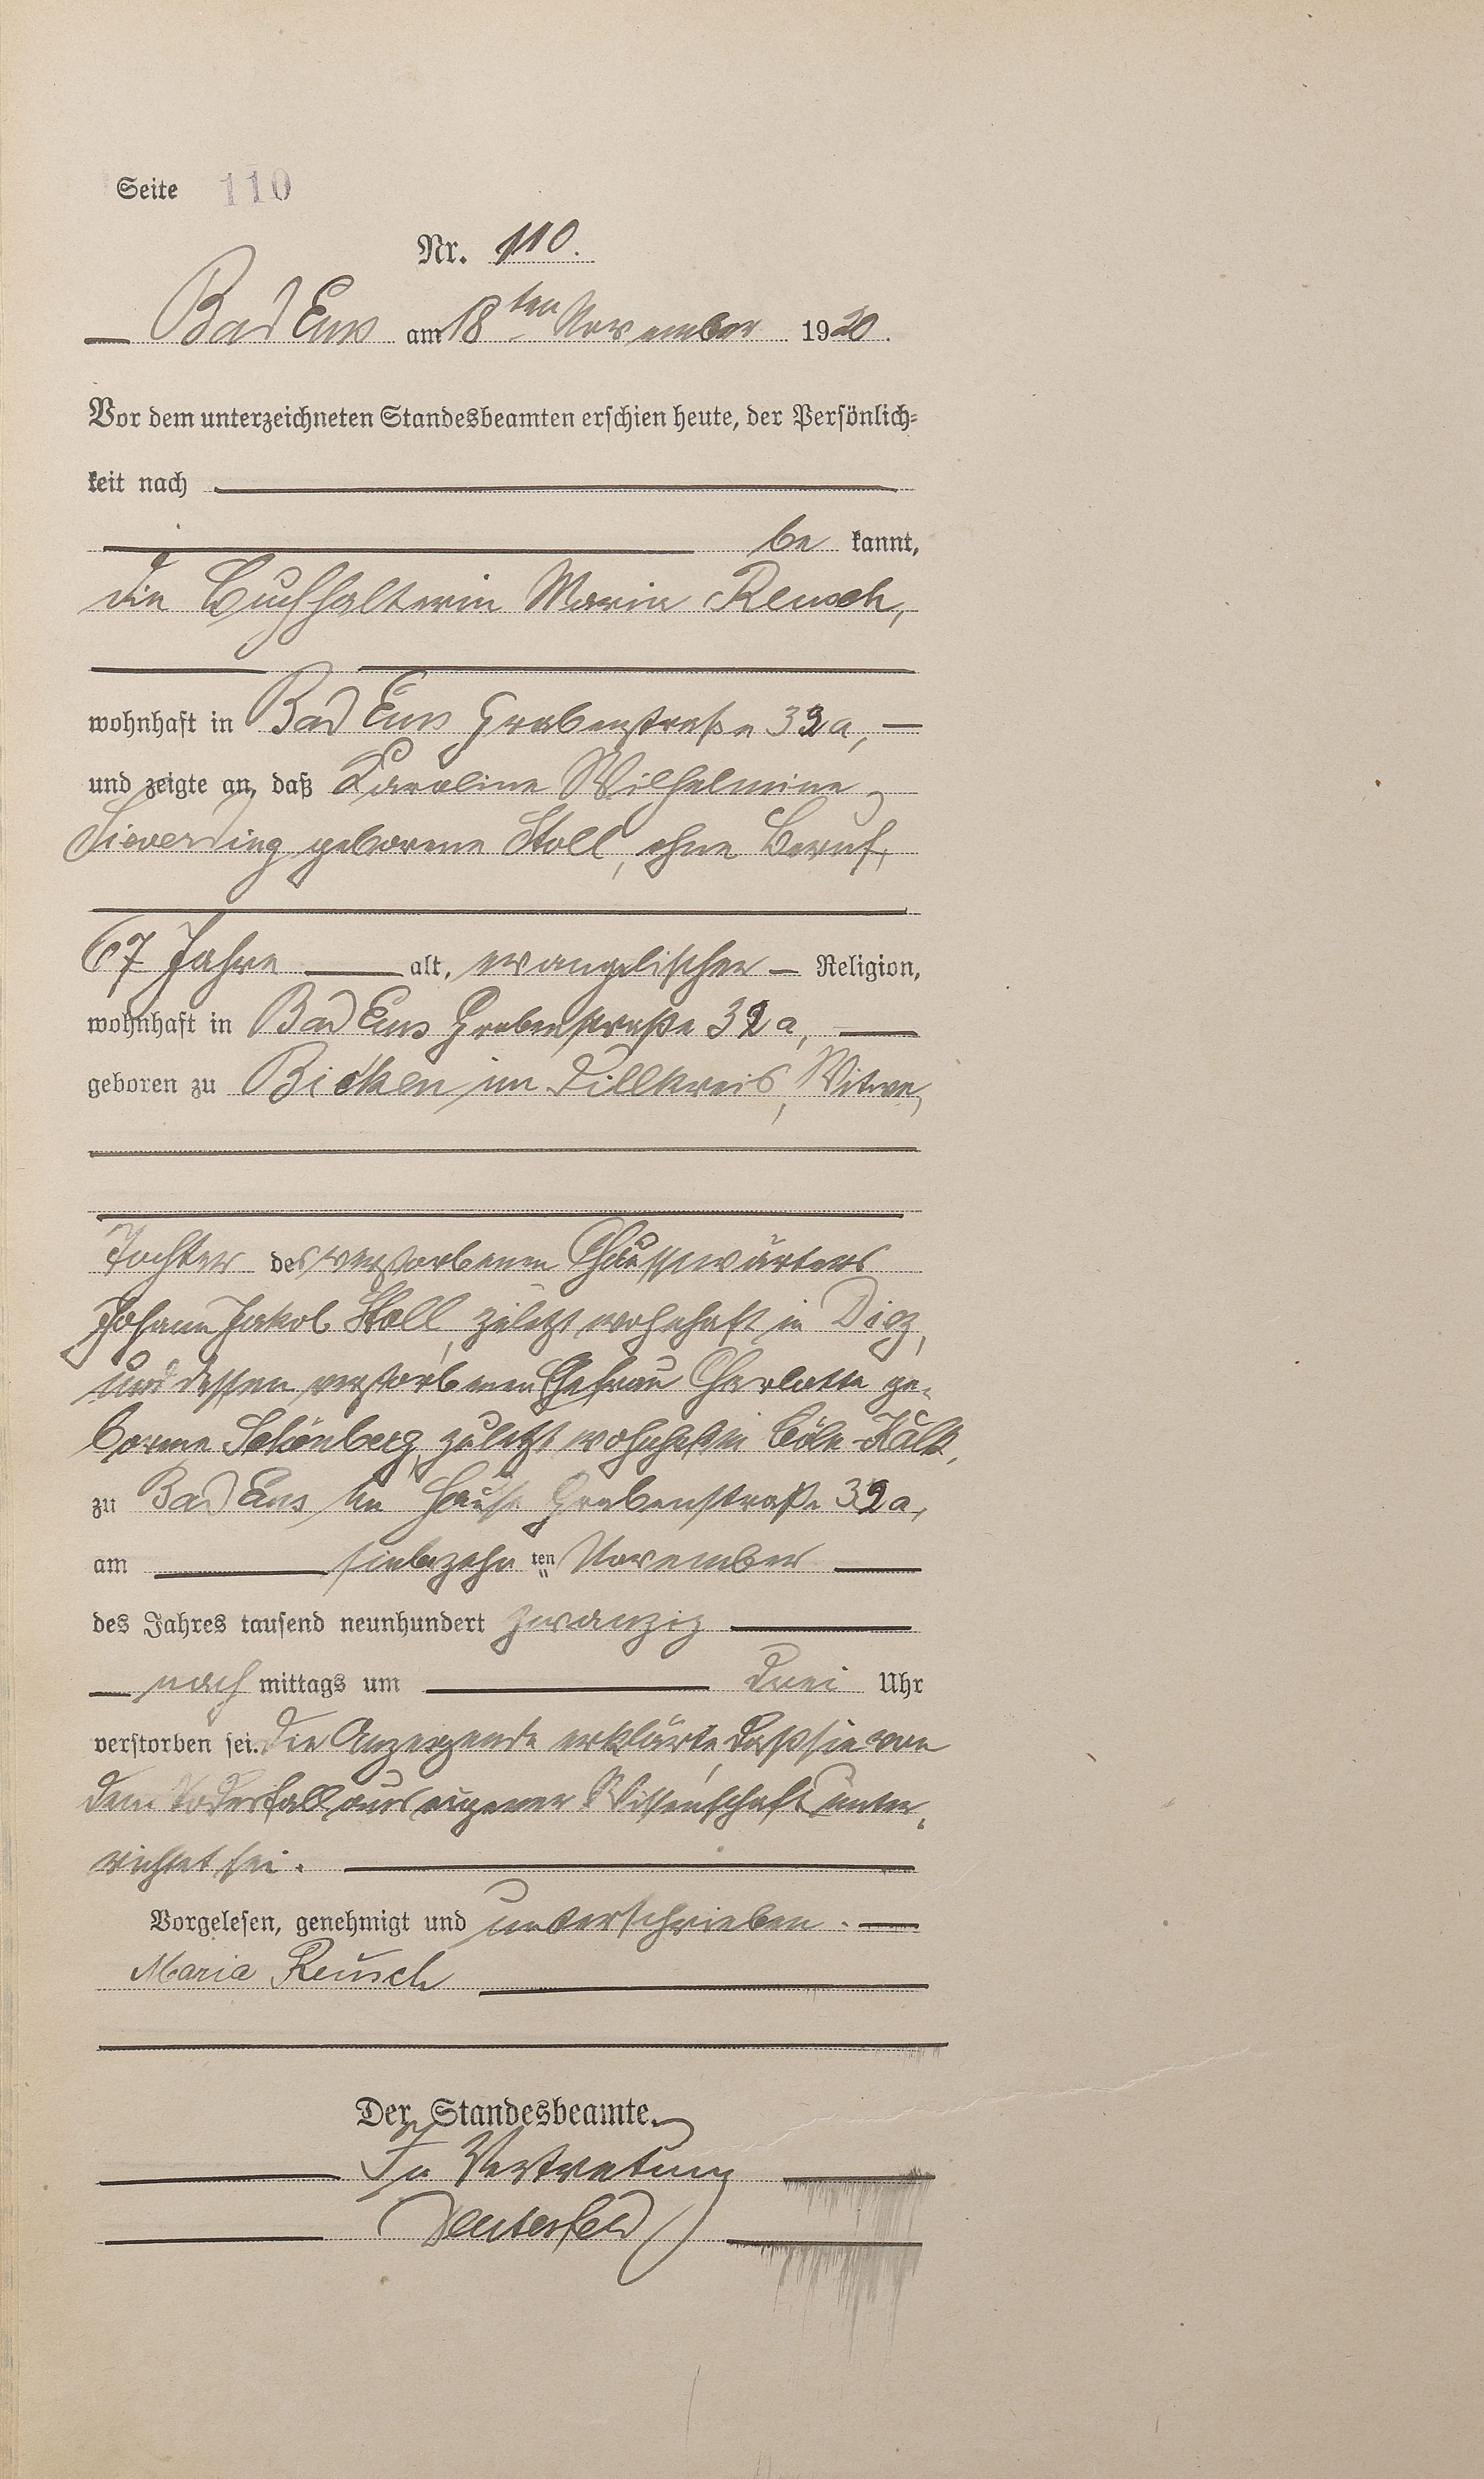 Seite 110
Nr. 110.
Bad Ems am 18ten November 1920.
Vor dem unterzeichneten Standesbeamten erschien heute, der Persönlich-
keit nach
be kannt,
die Buchhalterin Maria Reusch,
wohnhaft in Bad Ems Grabenstraße 32a,
und zeigte an, daß Karoline Wilhelmine
Sieverding geborene Stoll, ohne Beruf,
67 Jahre alt, evangelischer Religion,
wohnhaft in Bad Ems Grabenstraße 32a,
geboren zu Bicken im Dillkreis, Witwe,
Tochter des verstorbenen Chausseewärters
Johann Jakob Stoll, zuletzt wohnhaft in Diez,
und dessen verstorbenen Ehefrau Charlotte ge-
borene Schönberg, zuletzt wohnhaft in Cöln-Kalk,
zu Bad Ems im Hause Grabenstraße 32a,
am siebzehn ten November
des Jahres tausend neunhundert zwanzig
nach mittags um drei Uhr
verstorben sei. Die Anzeigende erklärte, daß sie von
dem Todesfall aus eigener Wissenschaft unter-
richtet sei.
Vorgelesen, genehmigt und unterschrieben.
Maria Reusch
Der Standesbeamte.
In Vertretung